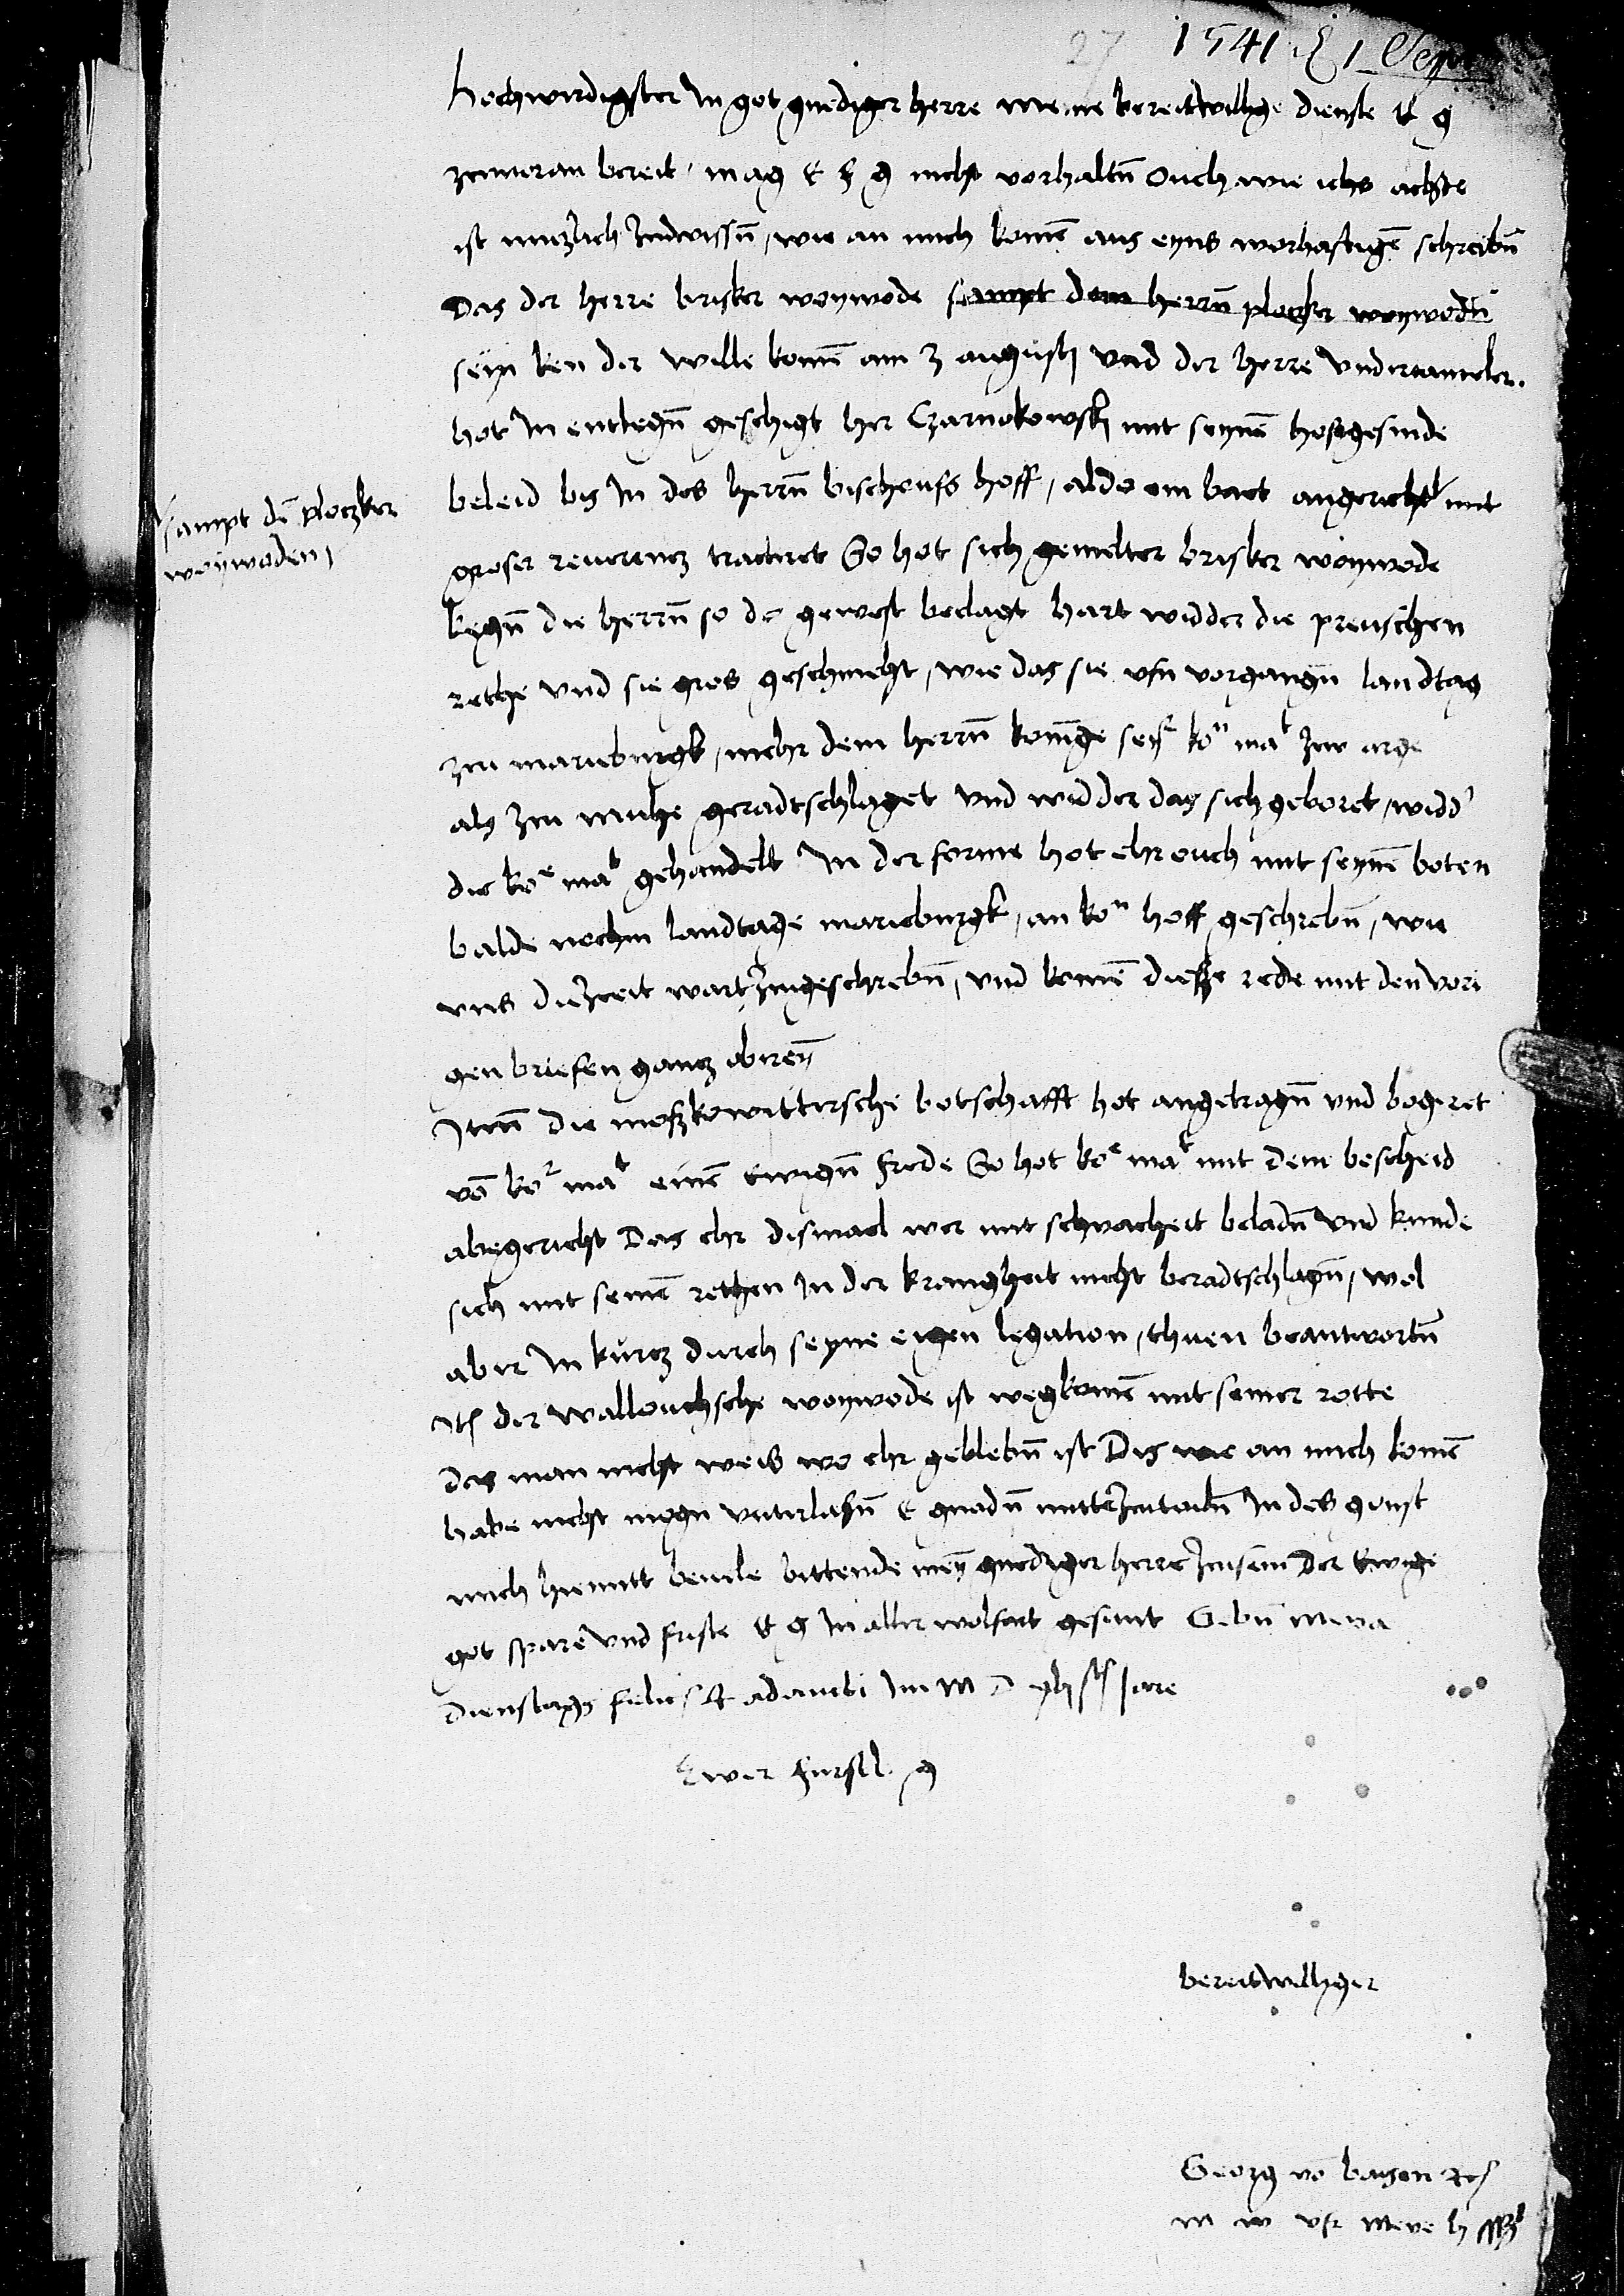 27 1541 1 Sep
Hochwirdigster In got gnediger herre meine bereitwillige dienste E g
zuuoran bereit, mag E f g nicht vorhaltn Ouch wie ichs achte
ist nuczlich zudwissn, wie an mich komē aus eyns worhaftigē schreibn
Das der herre brisker woywode sampt dem herrn ploczker woywodn
seyn ken der Wille komē am 3 augusti vnd der herre Vndercanczler
hot In entkegn geschigt her Czarnokowski mit seynē hofegesinde
beleid bis In des herrn bischoufs hoff, aldo ein bact angericht mit
sampt dē ploczker
woywoden,
groser reuerencz tractiret So hot sich gemelter brisker woywode
kegn die herrn so do gewest beclagt hart widder die preuschen
rethe vnd sie gros geschmeht, wie das sie vfm vorgangn landtag
zcu marieburgk, mehr dem herrn konige seyr kon mat zcw arge
als zcu muhe geradtschlaget vnd widder das sich geboret, widdr
die koe mat gehandelt In der forme hot ehr ouch mit seynē boten
balde nochm landtage marieburgk, an kon hoff geschrebn, wie
vns die zceit wart zugeschrebn, vnd komē diesze rede mit den vori
gen briefen gancz obireyn
Item die moszkowittersche botschafft hot angetragn vnd begeret
vō kor mat einē Ewign frede So hot koe mat mit dem bescheid
abegericht Das ehr dismael wer mit schwacheit beladn vnd kunde
sich mit seinē rethen In der krangheit nicht beradtschlagn, wol
aber In kurcz durch seyne eigen legation, thuen beantwortn
Its der wallouchsche woywode ist wegkomē mit seiner rotte
das man nicht weis wo ehr geblebn ist Dis wie an mich komē
habe nicht mogn vnterlasn E gnadn mitte zuteiln In des gonst
mich hiemitt beuele bittende meyn gnediger herre zusein Der Ewige
got spare vnd friste E g In aller wolfart gesunt Gebn Mewa
Dienstags felicis et adaucti Im M D xlj stē Jare
Ewer furstl. g
bereitwilliger
Georg vō baysen
M w vfr Meve h